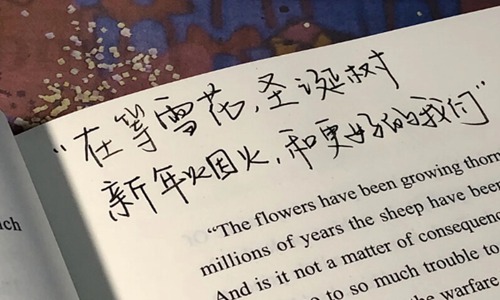 "在等雪花,圣诞树
新年烟火,和更好的我们"
"The flowers have been growing thorn
millions of years the sheep have been
And is it not a matter of consequenc
to so much trouble to
the warfare
ch